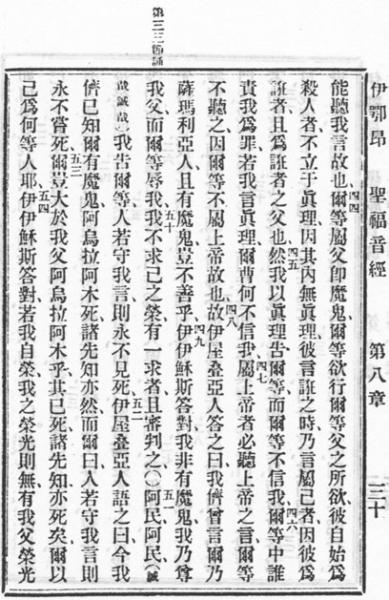 伊鄂昂 聖福音經 第八章 三十
四四
能聽我言故也爾等屬父卽魔鬼爾等欲行爾等父之所欲彼自始爲
殺人者不立于眞理因其內無眞理彼言誑之時乃言屬己者因彼爲
四五 四六
誑者且爲誑者之父也然我以眞理告爾等而爾等不信我爾等中誰
四七
責我爲罪若我言眞理爾曹何不信我屬上帝者必聽上帝之言爾等
四八
不聽之因爾等不屬上帝故也故伊屋疊亞人答之曰我儕曾言爾乃
四九
薩瑪利亞人且有魔鬼豈不善乎伊伊穌斯答對我非有魔鬼我乃尊
五十 五一
第三三節誦
我父而爾等辱我我不求己之榮有一求者且審判之〇阿民阿民(誠
五二
哉誠哉)我告爾等人若守我言則永不見死伊屋疊亞人語之曰今我
儕已知爾有魔鬼阿烏拉阿木死諸先知亦然而爾曰人若守我言則
五三
永不嘗死爾豈大於我父阿烏拉阿木乎其已死諸先知亦死矣爾以
五四
己爲何等人耶伊伊穌斯答對若我自榮我之榮光則無有我父榮光